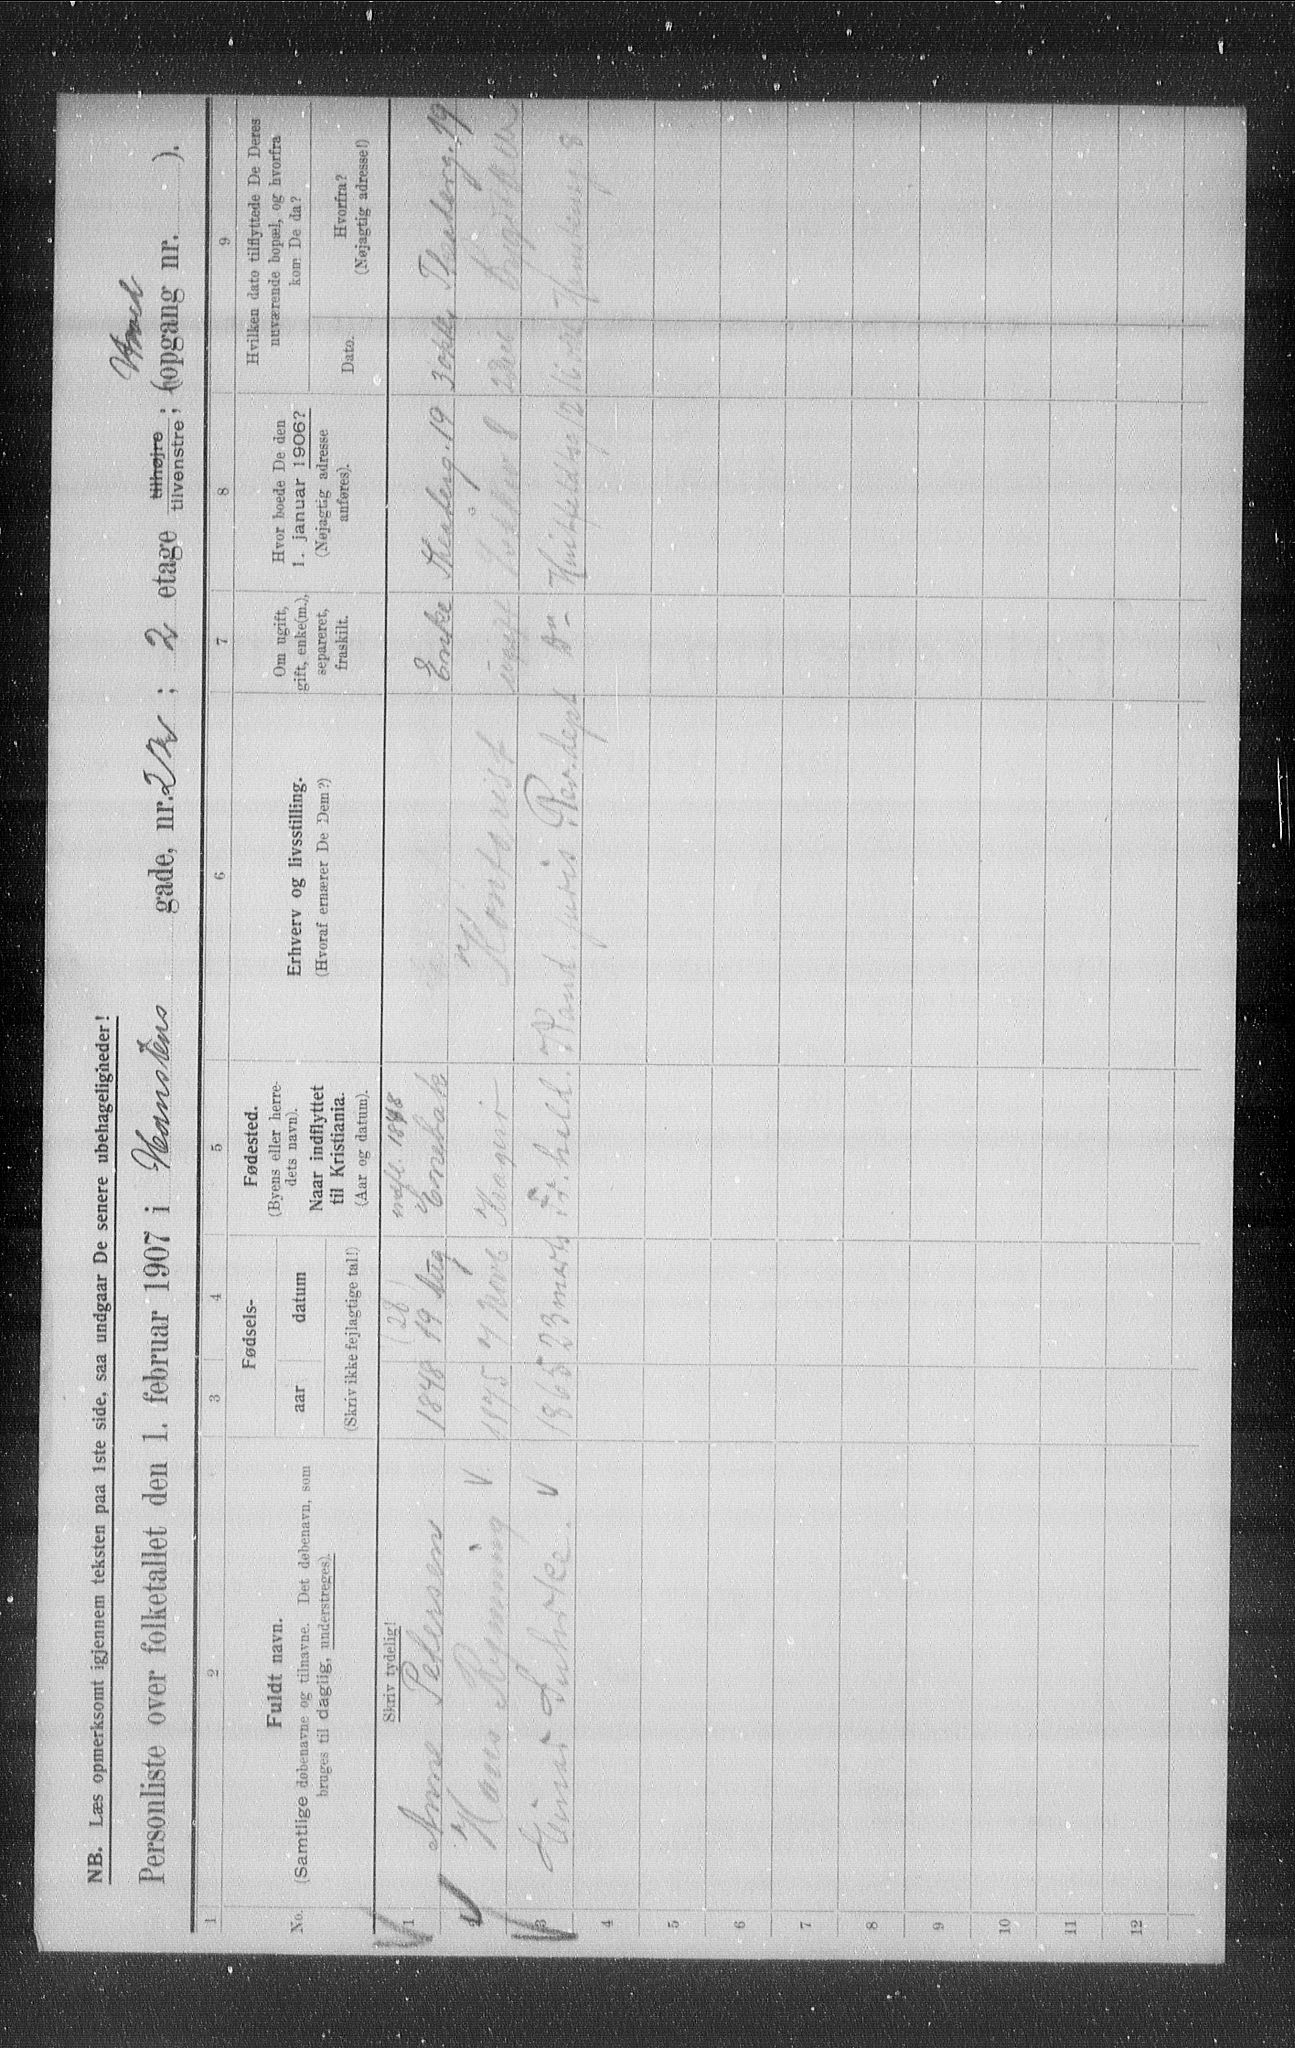 NB. Læs opmerksomt igjennem teksten paa 1ste side, saa undgaar De senere ubehageligheder!
Personliste over folketallet den 1. februar 1907 i Hanstens gade, nr. 2 ; 2 etage tilhøjre tilvenstre ; (opgang nr. ).
1 2 3 4 5 6 7 8 9
No.
Fuldt navn.
(Samtlige døbenavne og tilnavne. Det døbenavn, som
bruges til daglig, understreges).
Fødsels-
aar datum
(Skriv ikke fejlagtige tal!)
Fødested.
(Byens eller herre-
dets navn).
Naar indflyttet
til Kristiania.
(Aar og datum).
Erhverv og livsstilling.
(Hvoraf ernærer De Dem?)
Om ugift,
gift, enke(m.),
separeret,
fraskilt.
Hvor boede De den
1. januar 1906?
(Nøjagtig adresse
anføres).
Hvilken dato tilflyttede De Deres
nuværende bopæl, og hvorfra
kom De da?
Dato.
Hvorfra?
(Nøjagtig adresse!)
Skriv tydelig!
(28) indfl.
1 Anne Petersen 1848 19 Aug Enebak Enke 19 3 okt. 19
Hans Rynning V 1875 7 Novb Kontorist ugift 8
3 Einar V 1865 23 marts Fr.hald. Kand juris Rev. dept Do 8
4
5
6
7
8
9
10
11
12